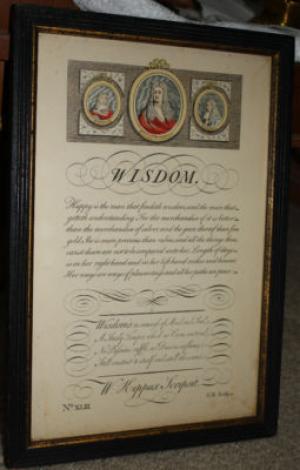 WISDOM.
Happy is the man that findeth wisdom, and the man that
getteth understanding. For the merchandise of it is better
than the merchandise of silver, and the gain thereof than fine
gold. She is more precious than rubies, and all the things thou
canst desire are not to be compared unto her. Length of days
is in her right hand and in her left hand riches and honour.
Her ways are ways of pleasantness, and all her paths are peace.
Wisdom's
A Steady temper
No
Still
W. Kippax Scripsit.
No. XLIII.